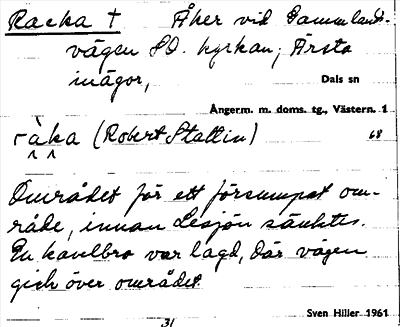 Racka † Åker vid Gammlands-
vägen SO. kyrkan, Ärsta
inägor,
Dals sn
Ångerm. m. doms. tg., Västern. 1
ràka (Robert Stattin) 68
Området för ett försumpat om-
råde, innan Lesjön sänktes.
En kavlbro var lagd, där vägen
gick över området
Sven Hiller 1961
31